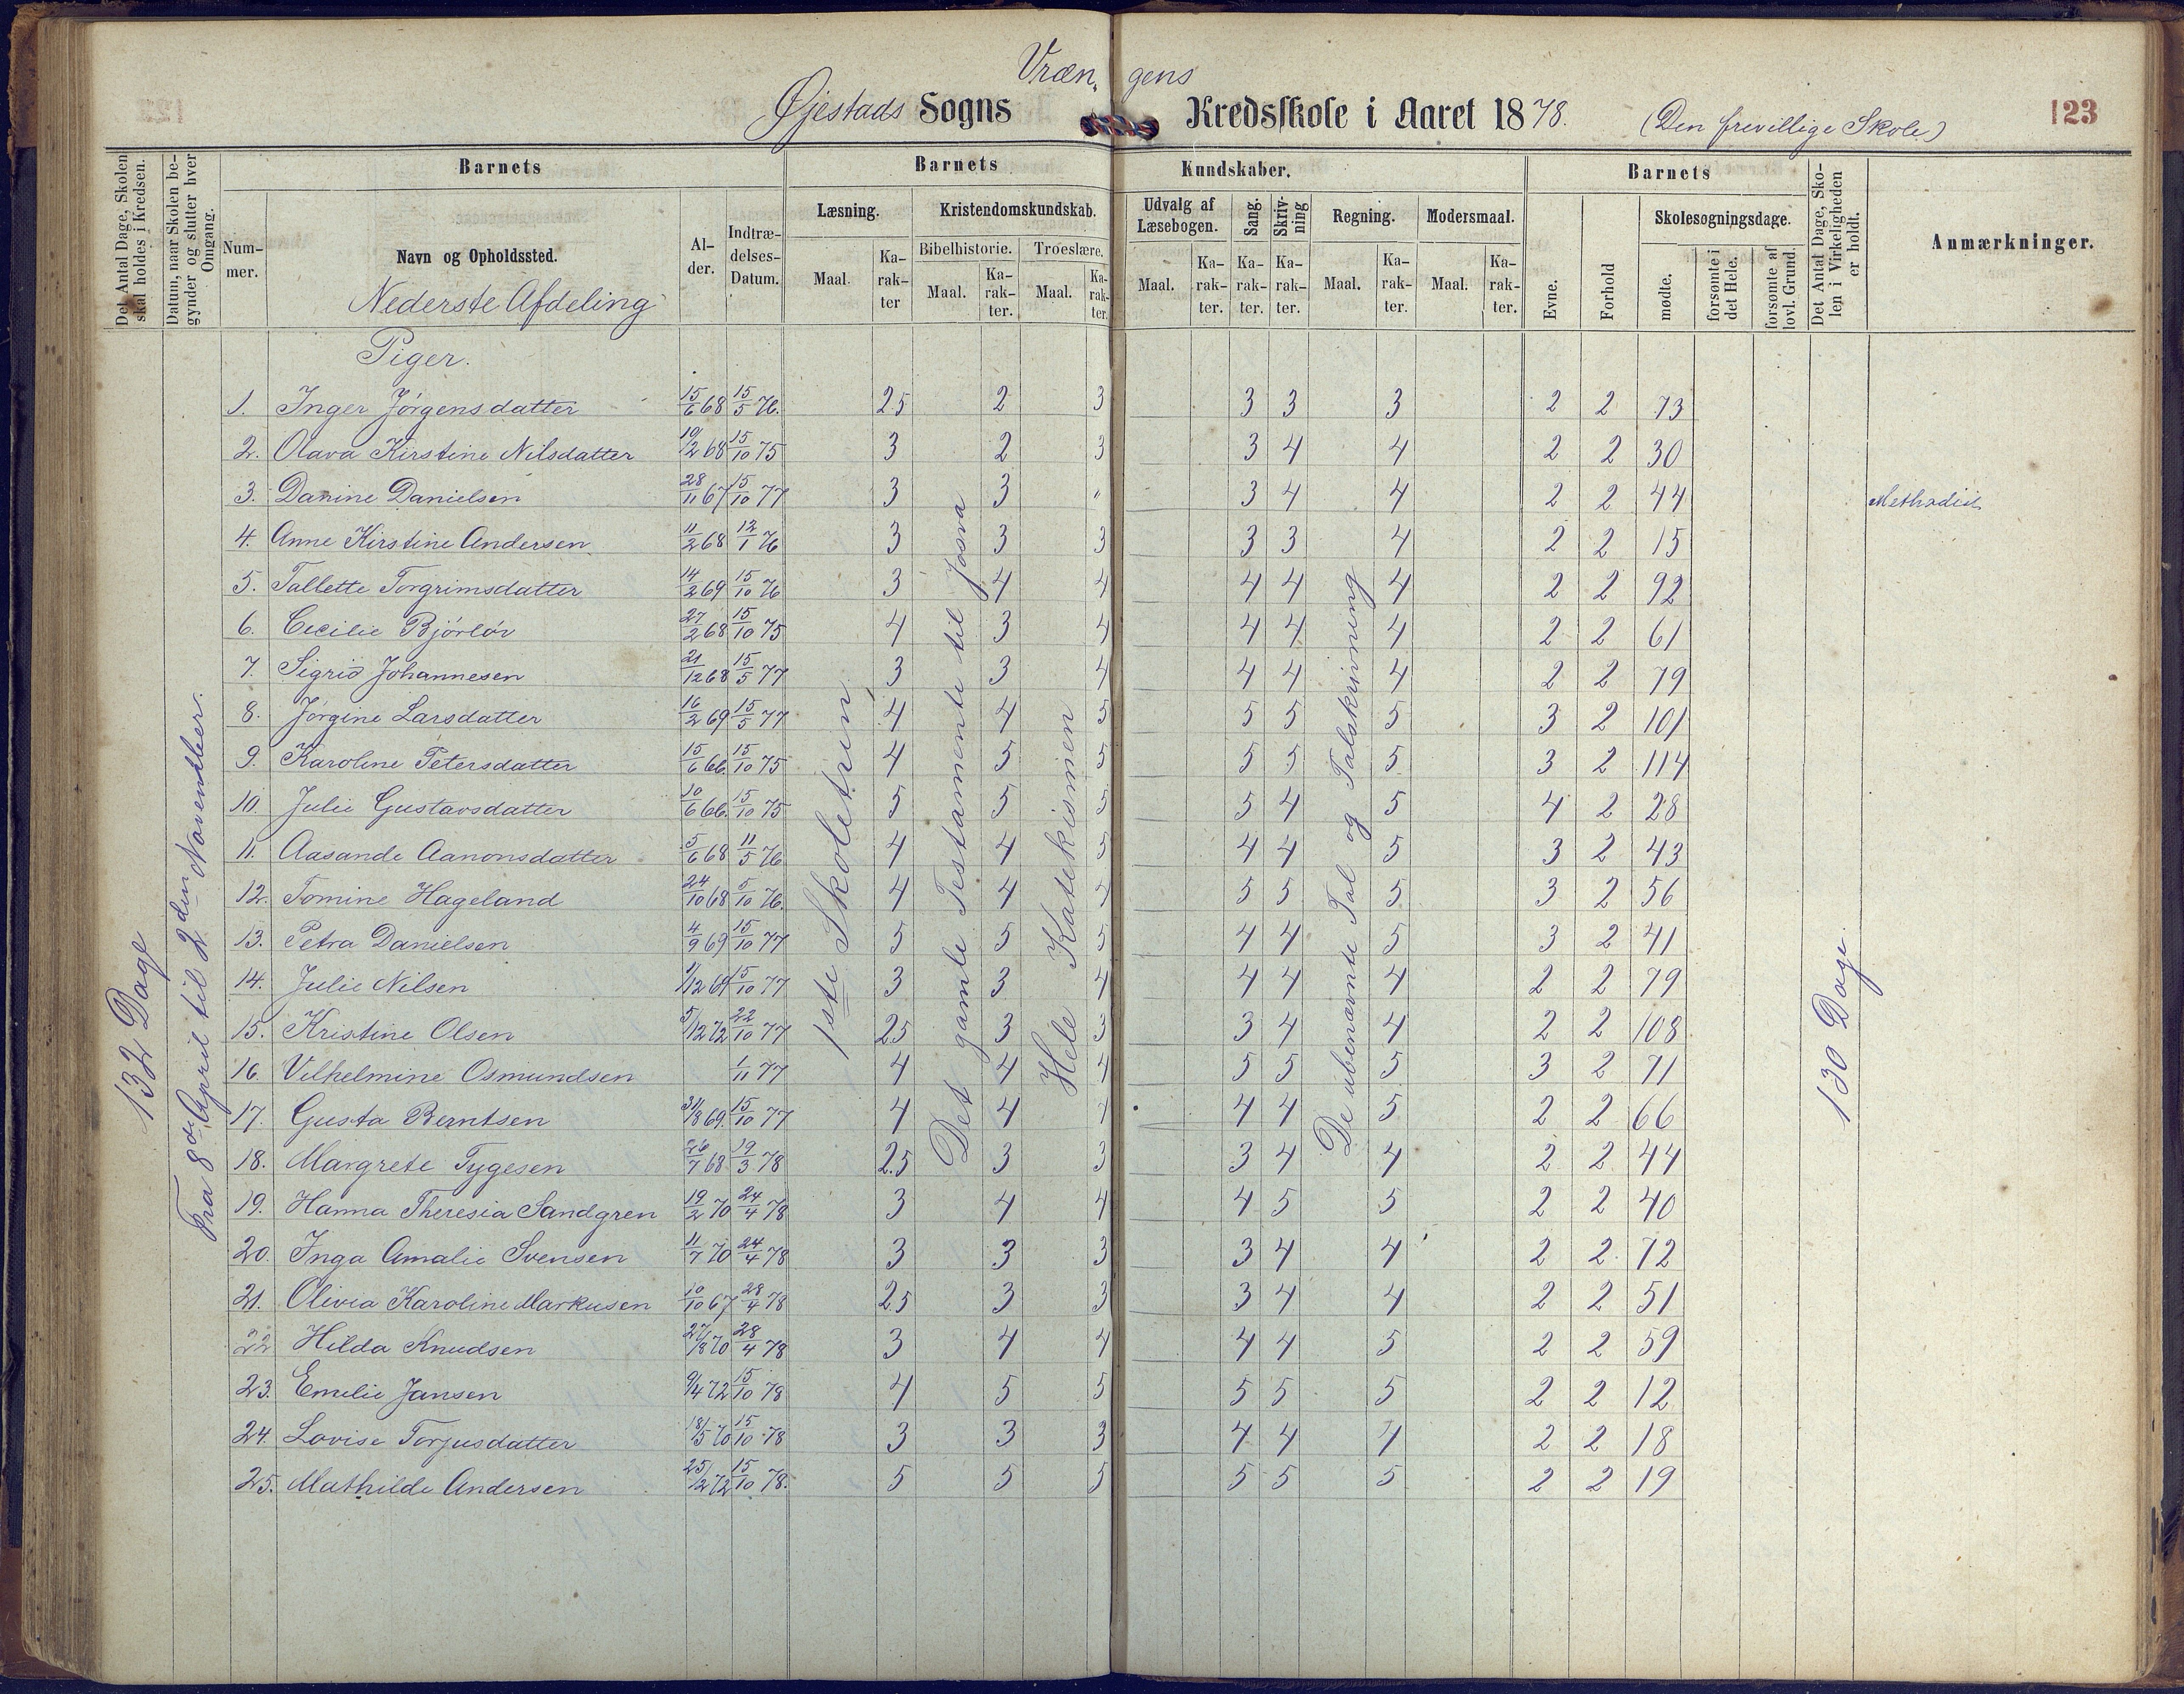 Vræn, gens
Øjestads Sogns Kredsskole i Aaret 1878. (Den frevillige Skole) 123
Det Antal Dage, Skolen skal holdes i Kredsen.
Datum, naar Skolen begynder og slutter hver Omgang.
Barnets Barnets Kundskaber. Barnets
Nummer. Navn og Opholdssted. Alder. Indtrædelses-Datum.
Læsning. Kristendomskundskab. Udvalg af Læsebogen. Sang. Skrivning Regning. Modersmaal.
Bibelhistorie. Troeslære.
Maal. Karakter Maal. Karakter. Maal. Karakter. Maal. Karakter. Karakter. Karakter. Maal. Karakter. Maal. Karakter.
Evne. Forhold Skolesøgningsdage. mødte. forsømte i det Hele. forsømte af lovl. Grund.
Det Antal Dage, Skolen i Virkeligheden er holdt.
Anmærkninger.
Nederste Afdeling
Piger.
132 Dage
Fra 8de April til 2den November.
1ste Skoletrin
Det gamle Testamente til Josva
Hele Katekismen
De ubenævnte Tal og Talskrivning
130 Dage.
1. Inger Jørgensdatter 15/6 68 15/5 76. 2.5 2 3 3 3 3 2 2 73
2. Olava Kirstine Nilsdatter 10/2 68 15/10 75 3 2 3 3 4 4 2 2 30
3. Danine Danielsen 28/11 67 15/10 77 3 3 " 3 4 4 2 2 44 Methodist
4. Anne Kirstine Andersen 11/2 68 12/1 76 3 3 3 3 3 4 2 2 15
5. Tallette Torgrimsdatter 14/2 69 15/10 76 3 4 4 4 4 4 2 2 92
6. Cecilie Bjórlór 27/2 68 15/10 75 4 3 4 4 4 4 2 2 61
7. Sigrid Johannesen 21/12 68 15/5 77 3 3 4 4 4 4 2 2 79
8. Jørgine Larsdatter 16/2 69 15/5 77 4 4 5 5 5 5 3 2 101
9. Karoline Petersdatter 15/6 66. 15/10 75 4 5 5 5 5 5 3 2 114
10. Julie Gustavsdatter 10/6 66. 15/10 75 5 5 5 5 4 5 4 2 28
11. Aasande Aanonsdatter 5/6 68 11/5 76 4 4 5 4 4 5 3 2 43
12. Tomine Hageland 24/10 68 5/10 76. 4 4 4 5 5 5 3 2 56
13. Petra Danielsen 4/9 69 15/10 77 5 5 5 4 4 5 3 2 41
14. Julie Nilsen 1/12 69 15/10 77 3 3 4 4 4 4 2 2 79
15. Kristine Olsen 5/12 72 22/10 77 2.5 3 3 3 4 4 2 2 108
16. Vilhelmine Osmundsen 1/11 77 4 4 4 5 5 5 3 2 71
17. Gusta Berntsen 31/8 69. 15/10 77 4 4 4 4 4 5 2 2 66
18. Margrete Tygesen 26/7 68 19/3 78 2.5 3 3 3 4 4 2 2 44
19. Hanna Theresia Sandgren 19/2 70 24/4 78 3 4 4 4 5 5 2 2 40
20. Inga Amalie Svensen 11/7 70 24/4 78 3 3 3 3 4 4 2 2 72
21. Olivia Karoline Markusen 10/10 67 28/4 78 2.5 3 3 3 4 4 2 2 51
22 Hilda Knudsen 27/8 70 28/4 78 3 4 4 4 4 5 2 2 59
23. Emilie Jansen 9/4 72 15/10 78 4 5 5 5 5 5 2 2 12
24. Lovise Torjusdatter 18/5 70 15/10 78 3 3 3 4 4 4 2 2 18
25. Mathilde Andersen 25/12 72 15/10 78. 5 5 5 5 5 5 2 2 19